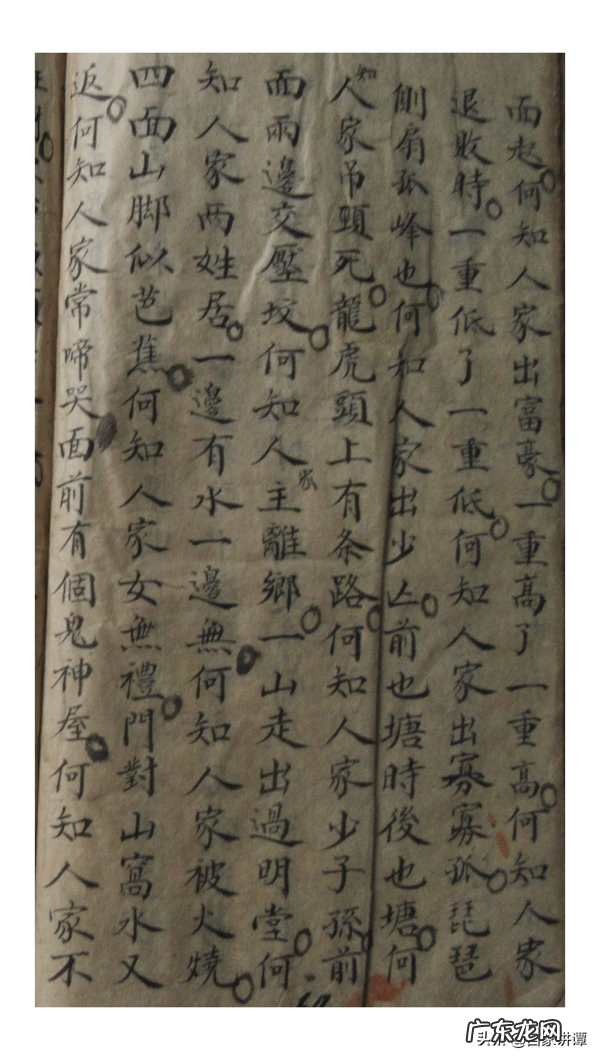 面起何知人家出富豪一重高了一重高何知人家
退敗時一重低了一重低何知人家出寡孤琵琶
側扇孤峰也何知人家出少亡前也塘時後也塘何
知人家吊頸死龍虎頸上有条路何知人家少子孫前
面兩邊交壓坟何知人家主離鄉一山走出過明堂何
知人家两姓居一邊有水一邊無何知人家被火燒
四面山脚似芭蕉何知人家女無禮門對山窩水又
返何知人家常啼哭面前有個鬼神屋何知人家不
广东龙网